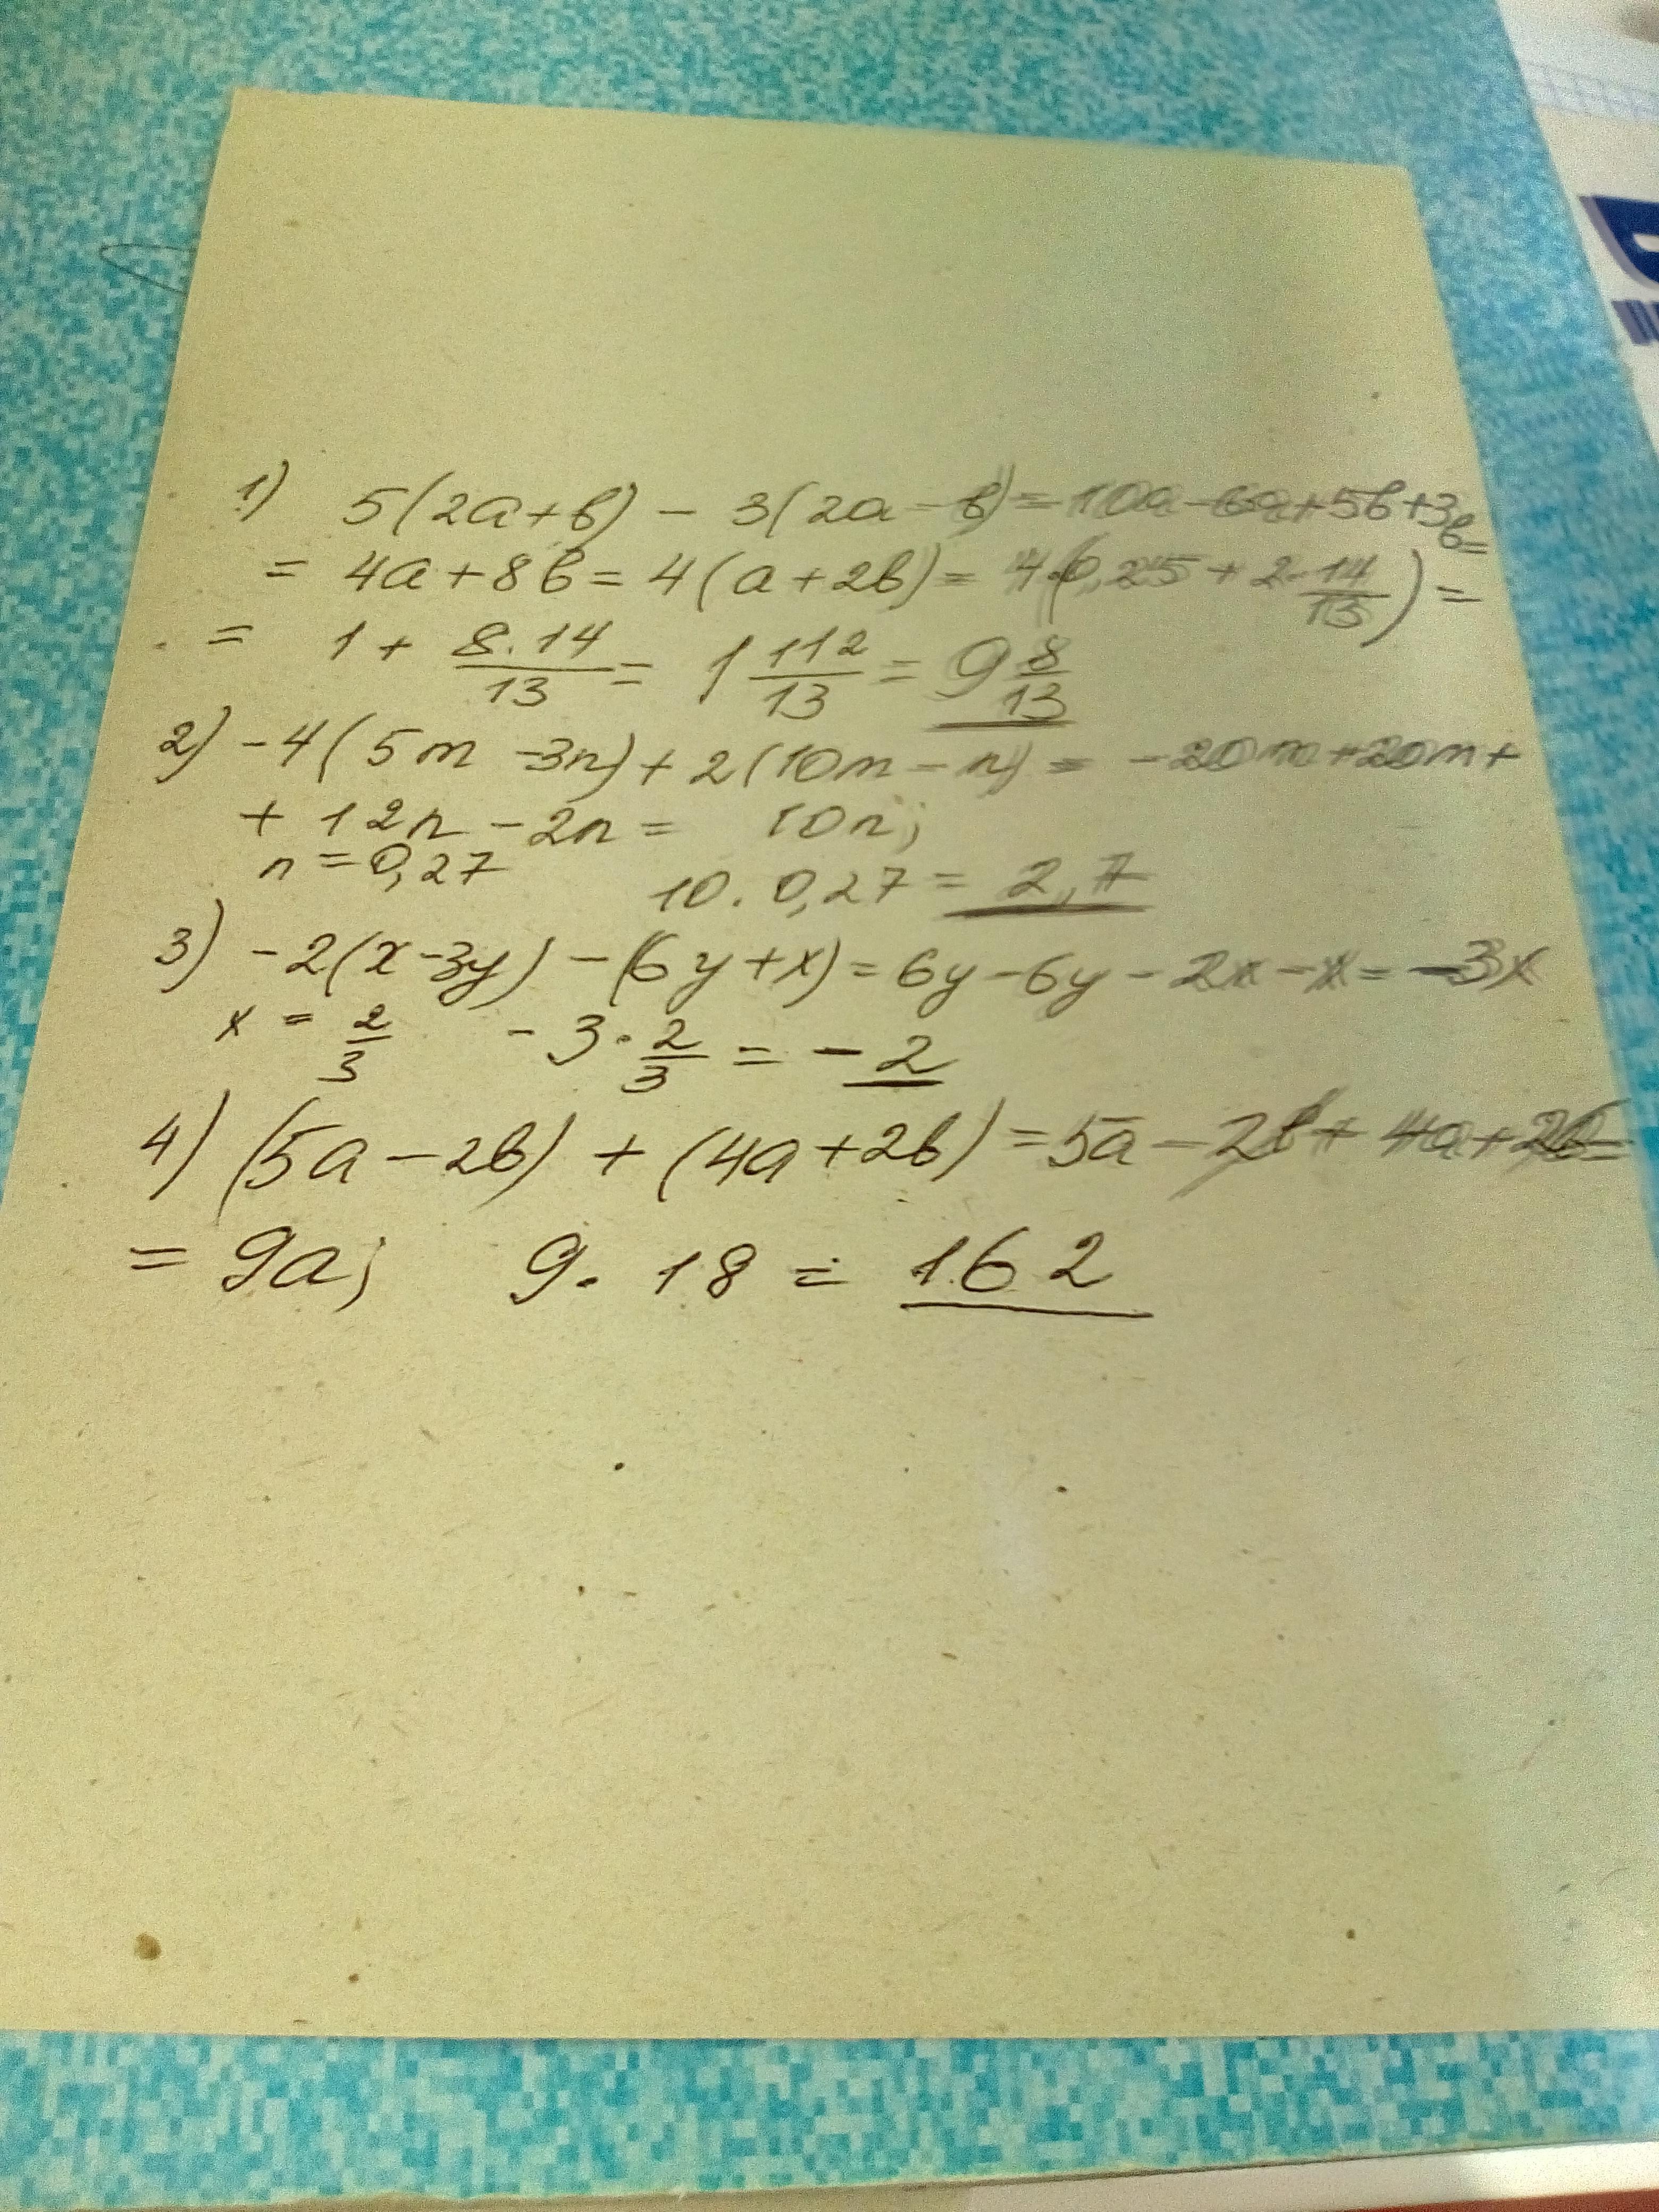 1) 5(2a+b) - 3(2a - b) = 10a - 6a + 5b + 3b =
= 4a + 8b = 4(a + 2b) = 4·(0,25 + 2·14/13) =
= 1 + 8·14/13 = 1 112/13 = 9 8/13
2) -4(5m -3n) + 2(10m - n) = -20m + 20m +
+ 12n - 2n = 10n;
n = 0,27 10 · 0,27 = 2,7
3) -2(x-3y) - (6y+x) = 6y - 6y - 2x - x = -3x
x = 2/3 -3·2/3 = -2
4) (5a - 2b) + (4a + 2b) = 5a - 2b + 4a + 2b =
= 9a; 9· 18 = 162